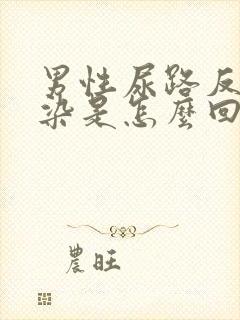 男性尿路反
染是怎麼回
農旺